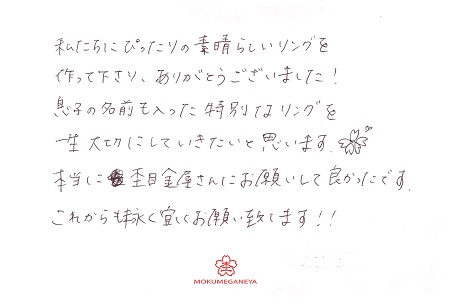 私たちにぴったりの素晴らしいリングを
作って下さり、ありがとうございました！
息子の名前も入った特別なリングを
一生大切にしていきたいと思います。
本当に杢目金屋さんにお願いして良かったです。
これからも末永く宜しくお願い致します！！
MOKUMEGANEYA